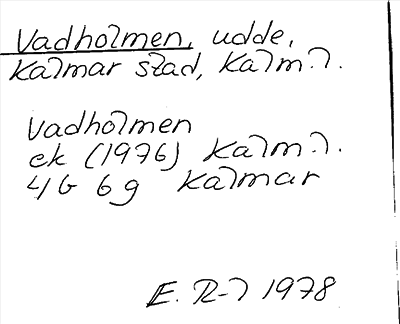 Vadholmen, udde,
Kalmar stad, Kalm. l.
Vadholmen
ek (1976) Kalm. l.
4G 6g Kalmar
E. R-l 1978